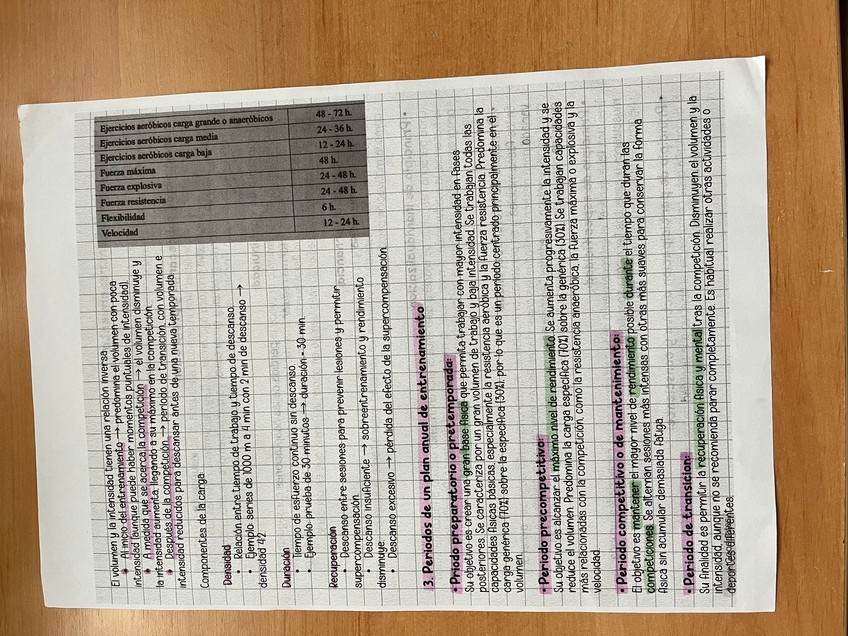 El volumen y la intensidad tienen una relación inversa
• Al inicio del entrenamiento → predomina el volumen con poca
intensidad (aunque puede haber momentos puntuales de intensidad).
• A medida que se acerca la competición → el volumen disminuye y
la intensidad aumenta, llegando a su máximo en la competición.
• Después de la competición → periodo de transición, con volumen e
intensidad reducidos para descansar antes de una nueva temporada.
Ejercicios aeróbicos carga grande o anaeróbicos 48 - 72 h.
Ejercicios aeróbicos carga media 24 - 36 h.
Ejercicios aeróbicos carga baja 12 - 24 h.
Fuerza máxima 48 h.
Fuerza explosiva 24 - 48 h.
Fuerza resistencia 24 - 48 h.
Flexibilidad 6 h.
Velocidad 12 - 24 h.
Componentes de la carga
Densidad
• Relación entre tiempo de trabajo y tiempo de descanso.
• Ejemplo: series de 1000 m a 4 min con 2 min de descanso →
densidad 4:2
Duración
• Tiempo de esfuerzo continuo sin descanso.
• Ejemplo: prueba de 30 minutos → duración = 30 min.
Recuperación
• Descanso entre sesiones para prevenir lesiones y permitir
supercompensación
• Descanso insuficiente → sobreentrenamiento y rendimiento
disminuye
• Descanso excesivo → pérdida del efecto de la supercompensación
3. Periodos de un plan anual de entrenamiento
• Priodo preparatorio o pretemporada:
Su objetivo es crear una gran base física que permita trabajar con mayor intensidad en fases
posteriores. Se caracteriza por un gran volumen de trabajo y baja intensidad. Se trabajan todas las
capacidades físicas básicas, especialmente la resistencia aeróbica y la fuerza resistencia. Predomina la
carga genérica (70%) sobre la específica (30%), por lo que es un periodo centrado principalmente en el
volumen.
• Periodo precompetitivo:
Su objetivo es alcanzar el máximo nivel de rendimiento. Se aumenta progresivamente la intensidad y se
reduce el volumen. Predomina la carga específica (70%) sobre la genérica (30%). Se trabajan capacidades
más relacionadas con la competición, como la resistencia anaeróbica, la fuerza máxima o explosiva y la
velocidad.
• Periodo competitivo o de mantenimiento:
El objetivo es mantener el mayor nivel de rendimiento posible durante el tiempo que duran las
competiciones. Se alternan sesiones más intensas con otras más suaves para conservar la forma
física sin acumular demasiada fatiga.
• Periodo de transicion:
Su finalidad es permitir la recuperación física y mental tras la competición. Disminuyen el volumen y la
intensidad, aunque no se recomienda parar completamente. Es habitual realizar otras actividades o
deportes diferentes.